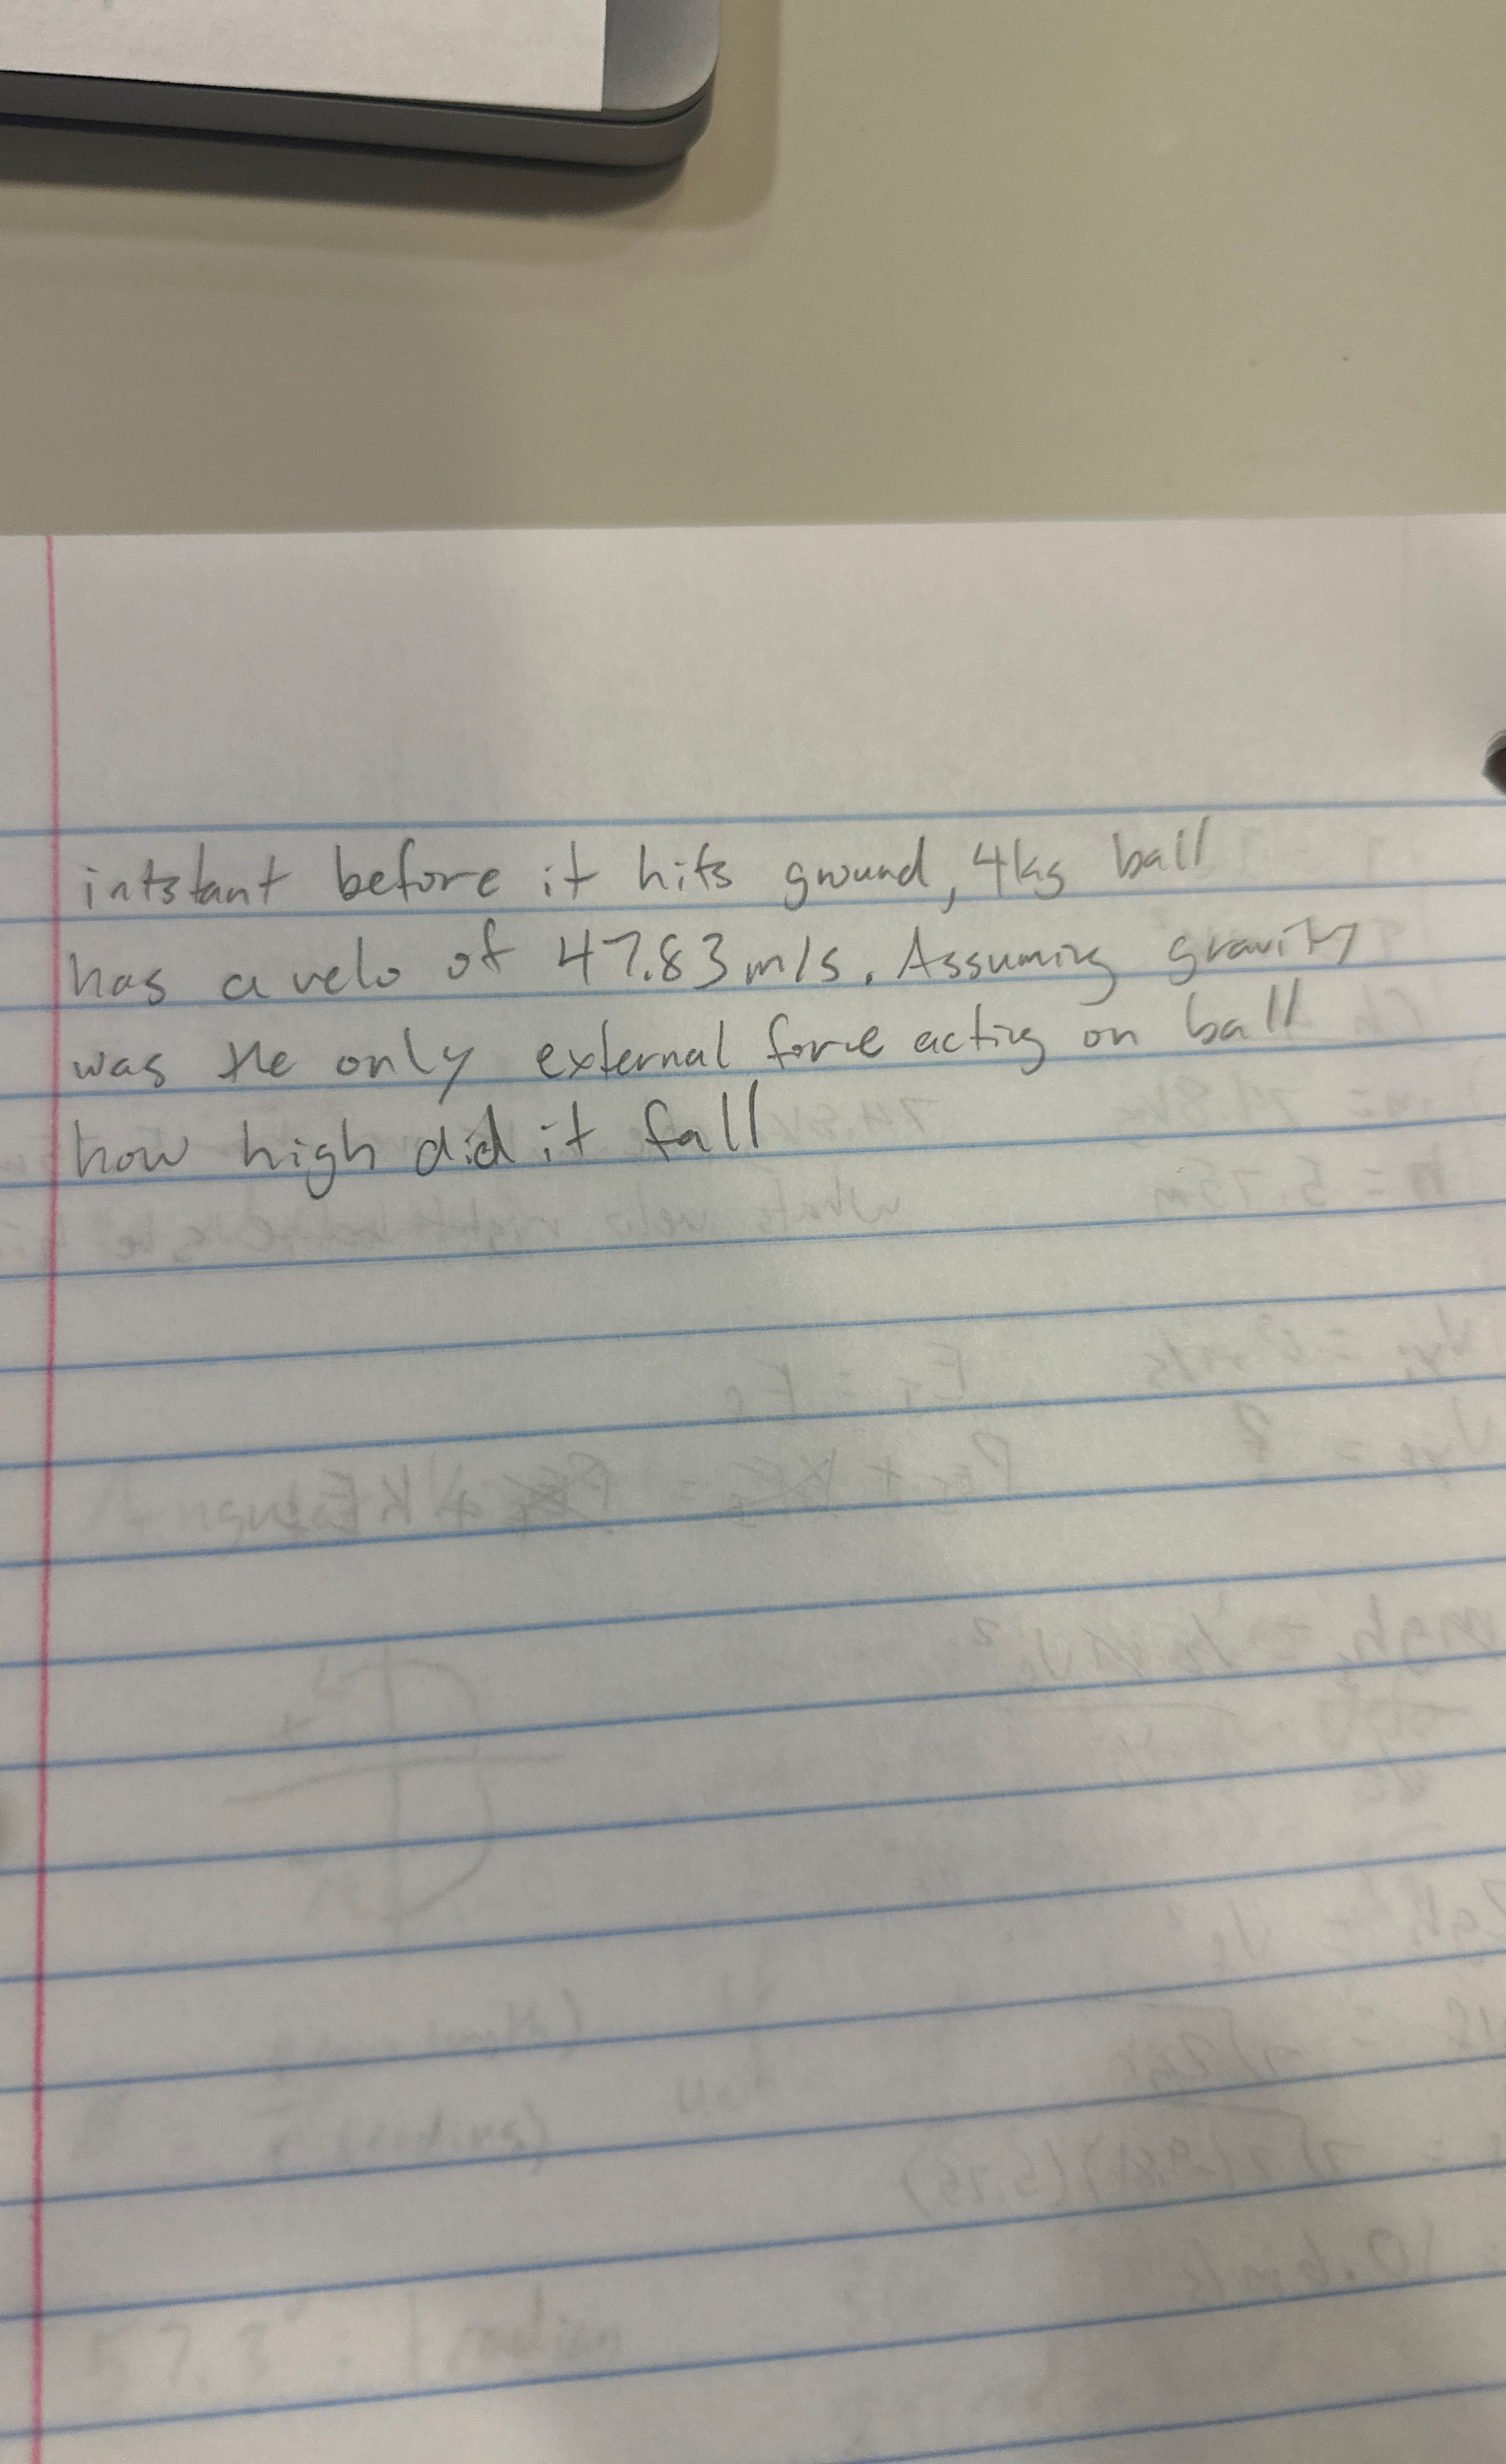 intstant before it hits ground, 4kg ball
has a velo of 47.83 m/s. Assuming gravity
was the only external force acting on ball
how high did it fall